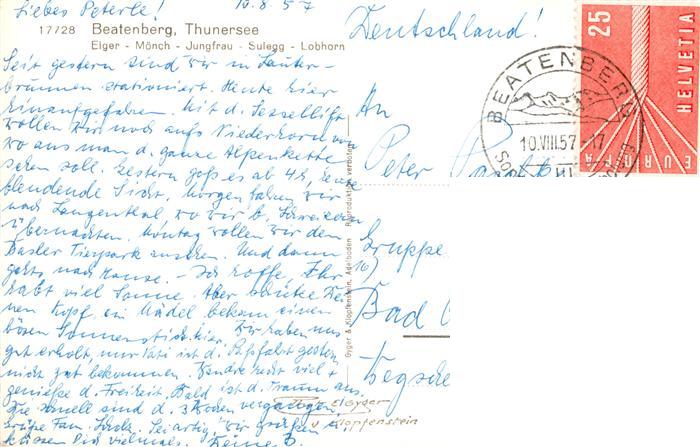 Liebes Peterle! 10.8.57
17728 Beatenberg, Thunersee
Eiger - Mönch - Jungfrau - Sulegg - Lobhorn
Seit gestern sind wir in Lauter-
brunnen stationiert. Heute hier
hinaufgefahren. Mit d. Sessellift
wollen wir noch aufs Niederhorn
wo aus man d. ganze Alpenkette
sehen soll. Gestern goß es ab 4h, heute
blendende Sicht. Morgen fahren wir
nach Langenthal wo wir b.
übernachten. Montag wollen wir den
Basler Tierpark ansehen. Und dann
gehts nach Hause. - Ich hoffe, Ihr
habt viel Sonne. Aber schütze Dei-
nen Kopf, ein Mädel bekam einen
bösen Sonnenstich hier. Wir haben uns
gut erholt, nur ist d. Paßfahrt gestern
nicht gut bekommen. viel +
genieße d. Freiheit. Bald ist d. Traum aus.
Wie schnell sind d. 3 Wochen vergangen.
Fam. Sei artig, wir grüßen +
küssen Dich vielmals. Deine
Deutschland!
An
Peter
Gruppe
16
Bad
Gyger & Klopfenstein, Adelboden Reproduktion verboten
E. Gyger
Klopfenstein
BEATENBERG
10.VIII.57.-17
25
HELVETIA
EUROPA